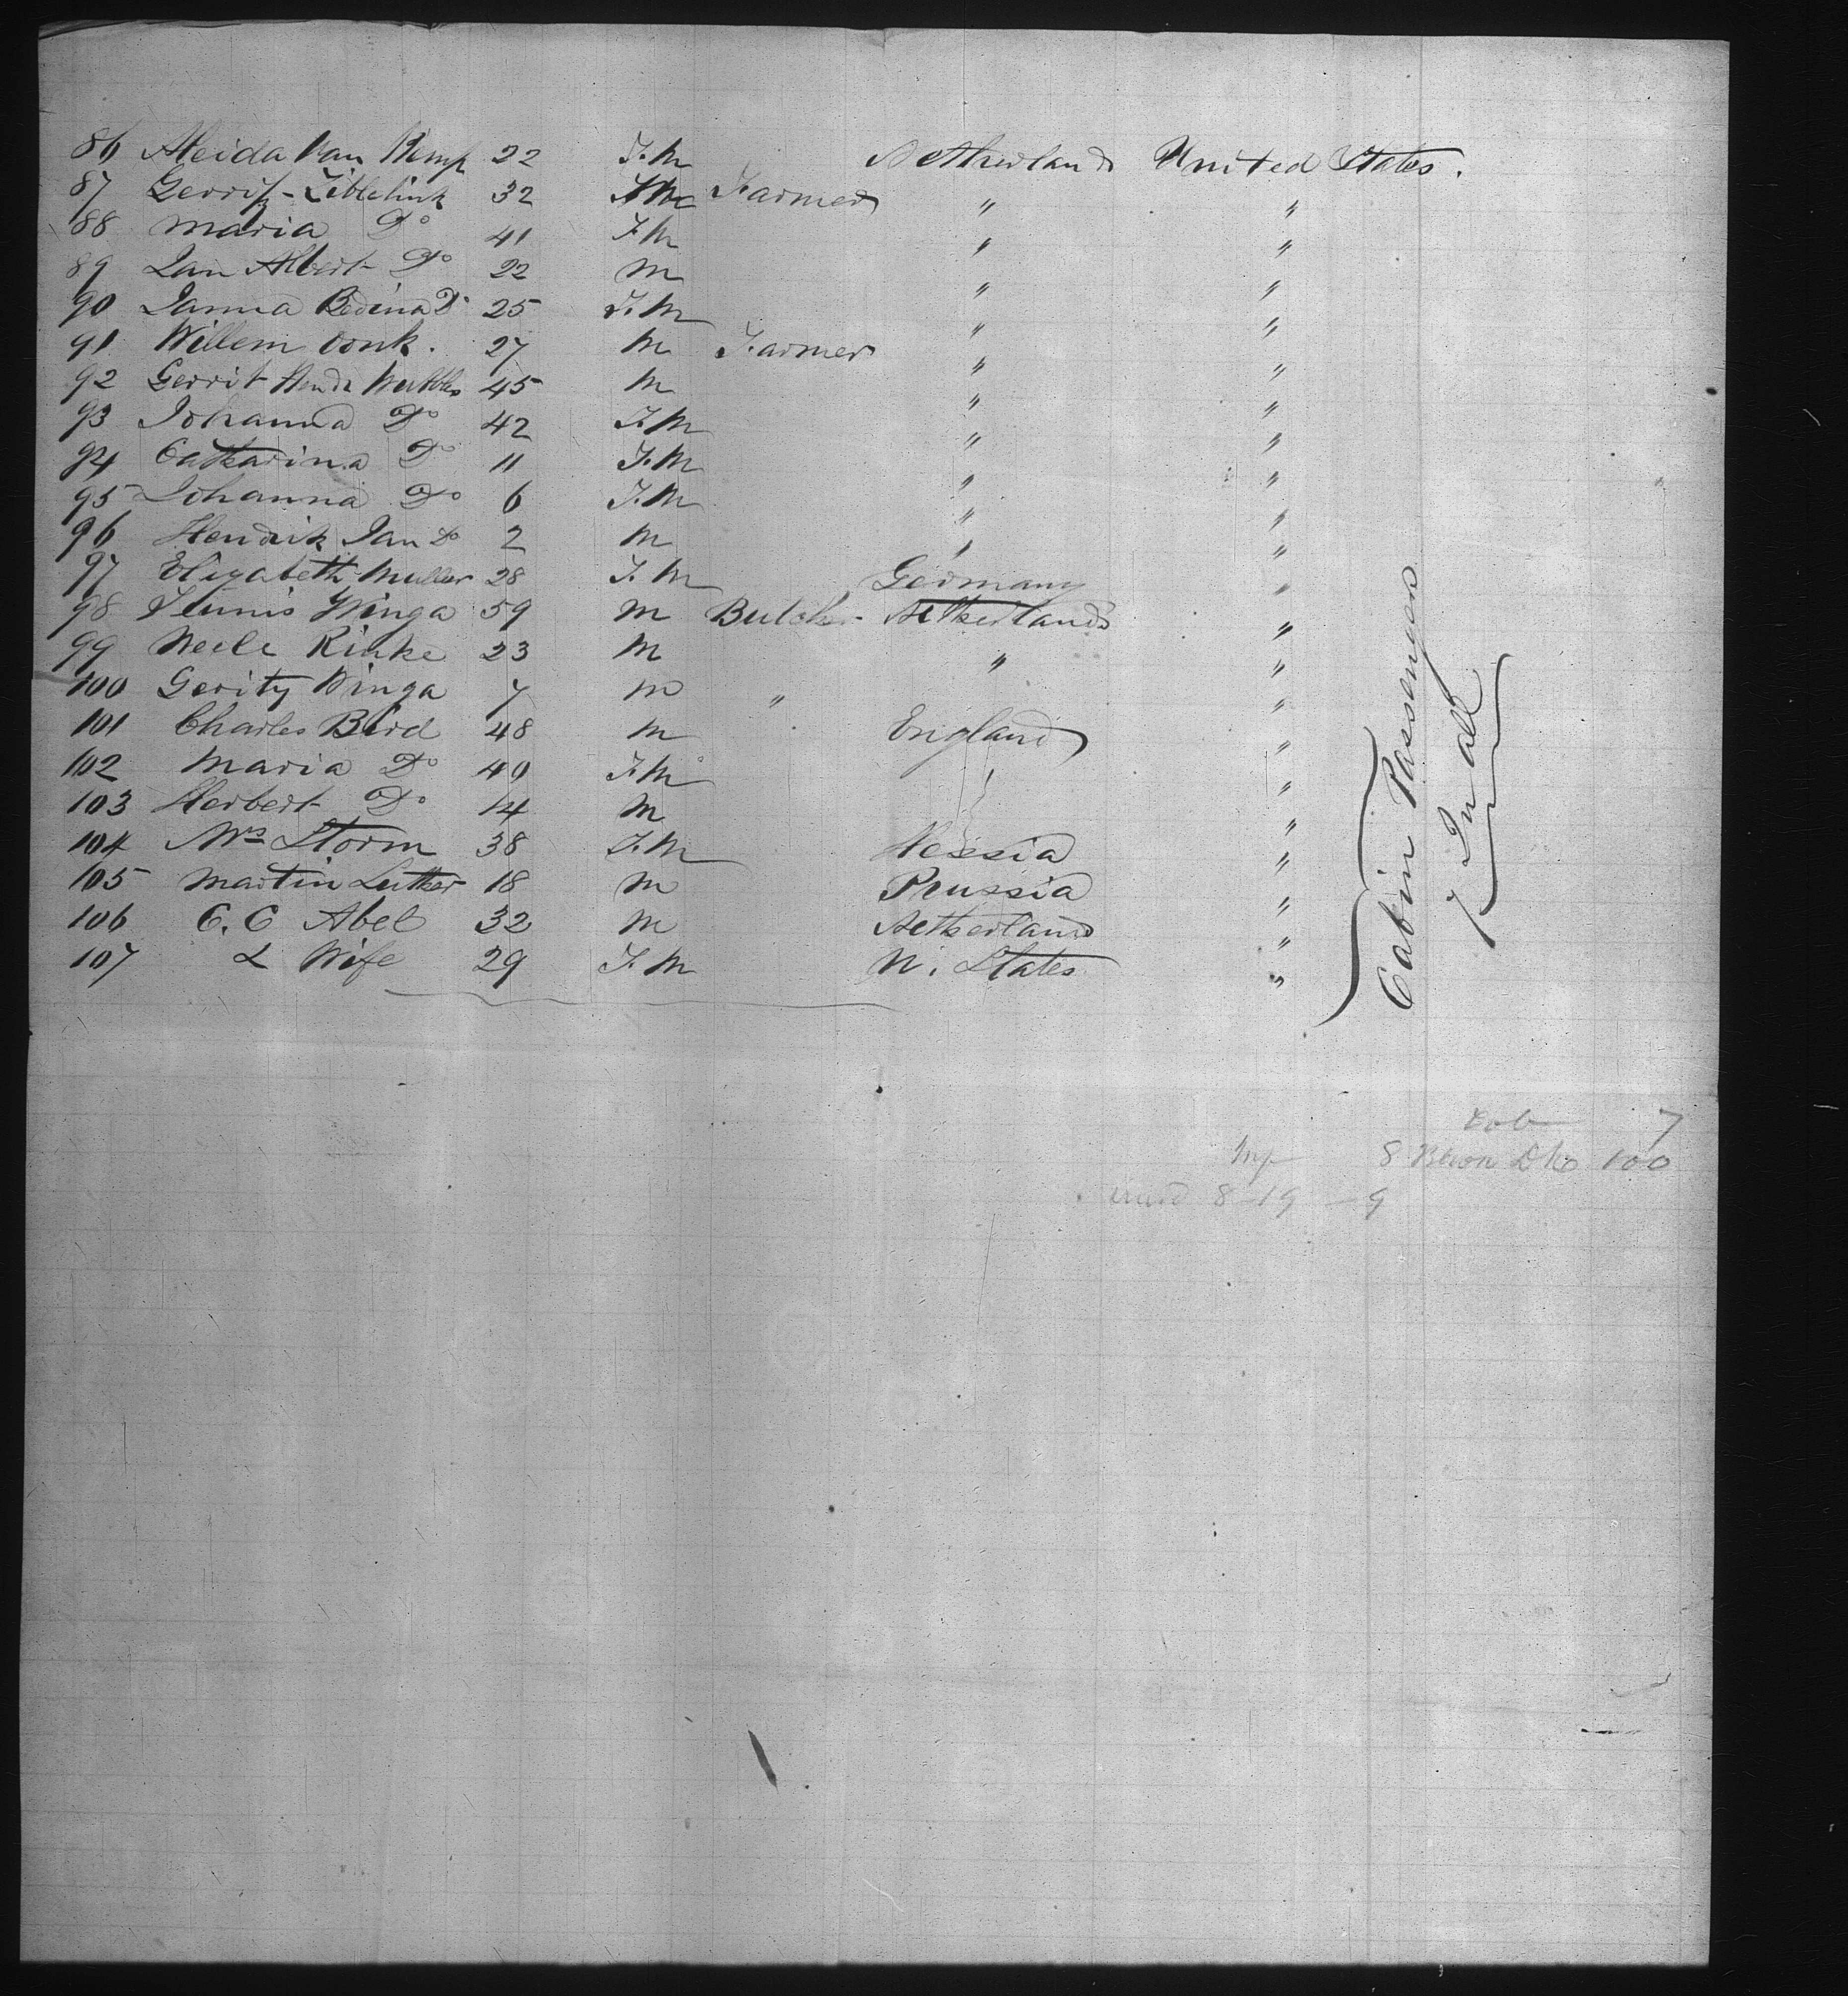 86 Aleida Van Kemp 22 F.M Netherlands United States.
87 Gerrit Zibbelink 32 M Farmer " "
88 Maria Do 41 F.M " "
89 Jan Albert Do 22 M " "
90 Janna Bedina Do 25 F.M " "
91 Willem Vonk. 27 M Farmer " "
92 Gerrit Hendk 45 M " "
93 Johanna Do 42 F.M " "
94 Catharina Do 11 F.M " "
95 Johanna Do 6 F.M " "
96 Hendrik Jan Do 2 M " "
97 Elizabeth Muller 28 F.M Germany "
98 Teunis Winga 59 M Butcher Netherlands "
99 Neele Rinke 23 M " "
100 Gerity Winga 7 M " "
101 Charles Bird 48 M England "
102 Maria Do 40 F.M " "
103 Herbert Do 14 M "
104 Mrs Storm 38 F.M Hessia "
105 Martin Luther 18 M Prussia "
106 C. C Abel 32 M Netherland "
107 & Wife 29 F.M U. States "
Cabin Passengers
7 In all
7
8 100
8 19 9